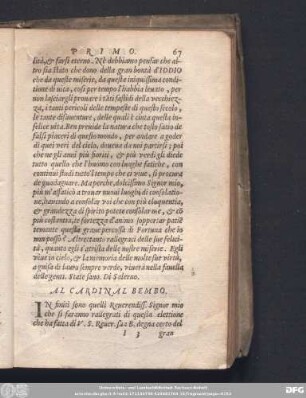 PRIMO. 67
lità, & forsi eterno. Nè debbiamo pensar che al-
tro sia stato che dono della gran bontà d'IDDIO
che da queste miserie, da questa iniquissima condi
tione di vita, cosi per tempo l'habbia levato, per
non lasciargli provare i tãti fastidi della vecchiez-
za, i tanti pericoli delle tempeste di questo secolo,
le tante disaventure, delle quali è cinta questa in-
felice vita. Ben provede la natura che tosto satio de
falsi piaceri di questo mondo, per andare a goder
di quei veri del cielo, dovemo da noi partirsi; poi
che ne gli anni più fioriti, & più verdi gli diede
tutto quello che l'huomo con lunghe fatiche, con
continui studi tutto'l tempo che ci vive, si procura
de guadagnare. Ma perche, dolcissimo Signor mio,
più m'affatico a trovar nuovi luoghi di consolatio-
ne, havendo a consolar voi che con più eloquentia,
& grandezza di spirito potete consolarme, & cõ
più costantia, & fortezza d'animo sopportar patiẽ
temente questa grave percossa di Fortuna che io
non posso? Altrettanto rallegrati delle sue felici-
tà, quanto egli è attristo delle nostre miserie. Egli
vive in cielo, & la memoria delle molte sue virtù,
a guisa di lauro sempre verde, viverà nella favella
delle genti. State sano. Di Salerno.
AL CARDINAL BEMBO.
IN finiti sono quelli Reverendiss. Signor mio
che si saranno rallegrati di questa elettione
che ha fatta di V. S. Rever. sua B. degna certo del
I 3 gran